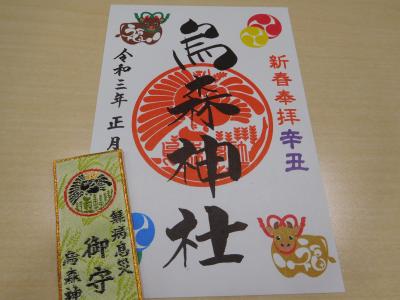 新春奉拝 辛丑
烏森神社
令和三年 正月
無病息災
御守
烏森神